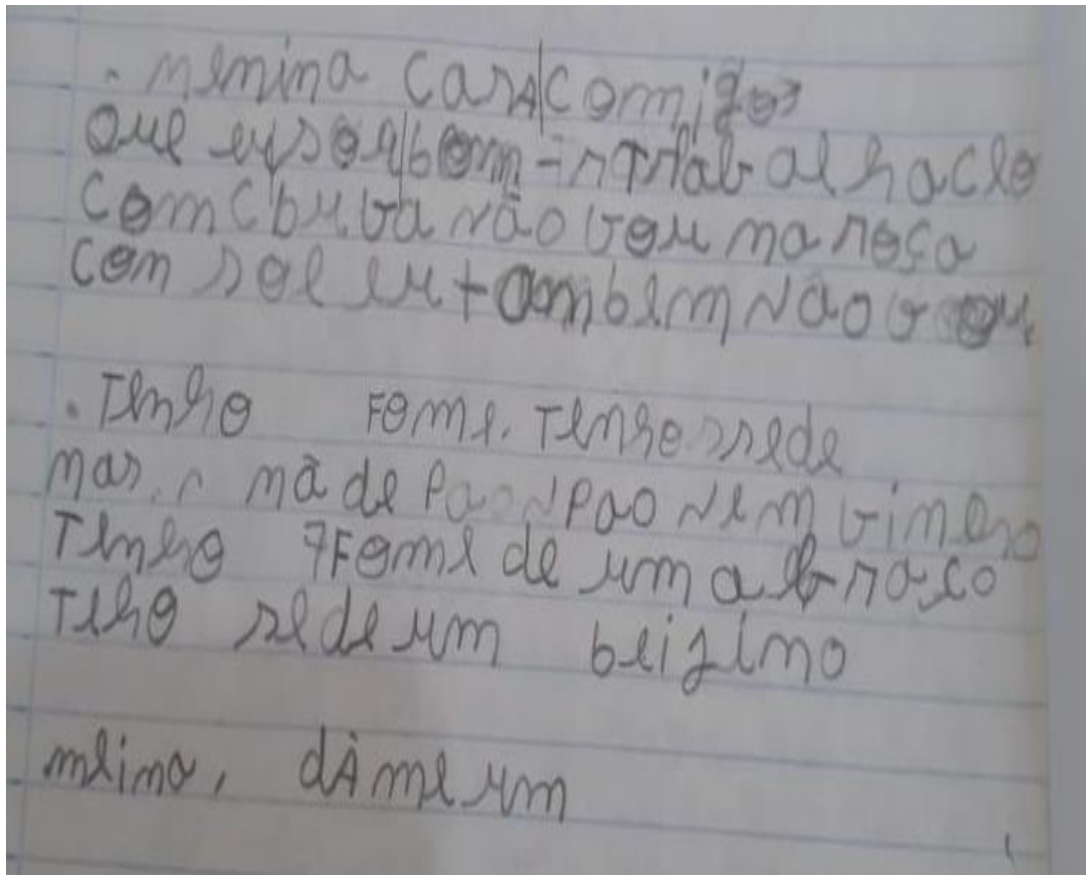 . menina casa comigo
que eu sou bom - trabalhado
com cbuva não vou na roça
com sol eu tambem não vou
. Tenho Fome. Tenho sede
mas. n nã de Pao N Pao Nem vinho
Tenho Fome de um abraço
Teho sede um beizino
meina, dá me um